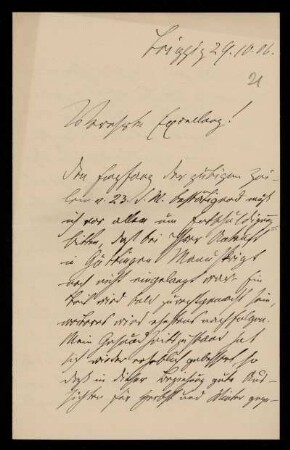 Leipzig 29.10.06.
21
Verehrte Exzellenz!
Den Empfang der gütigen Zei-
len v. 23. d. M. bestätigend muß
ich vor allem um Entschuldigung
bitten, daß bei Ihrer Ankunft
in Göttingen Manuskript
noch nicht eingelangt war. Ein
Teil wird bald zurechtgemacht sein,
weiteres wird ehestens nachfolgen.
Mein Gesundheitszustand hat
sich wieder erheblich gebessert, so
daß in dieser Beziehung gute Aus-
sichten für Herbst und Winter